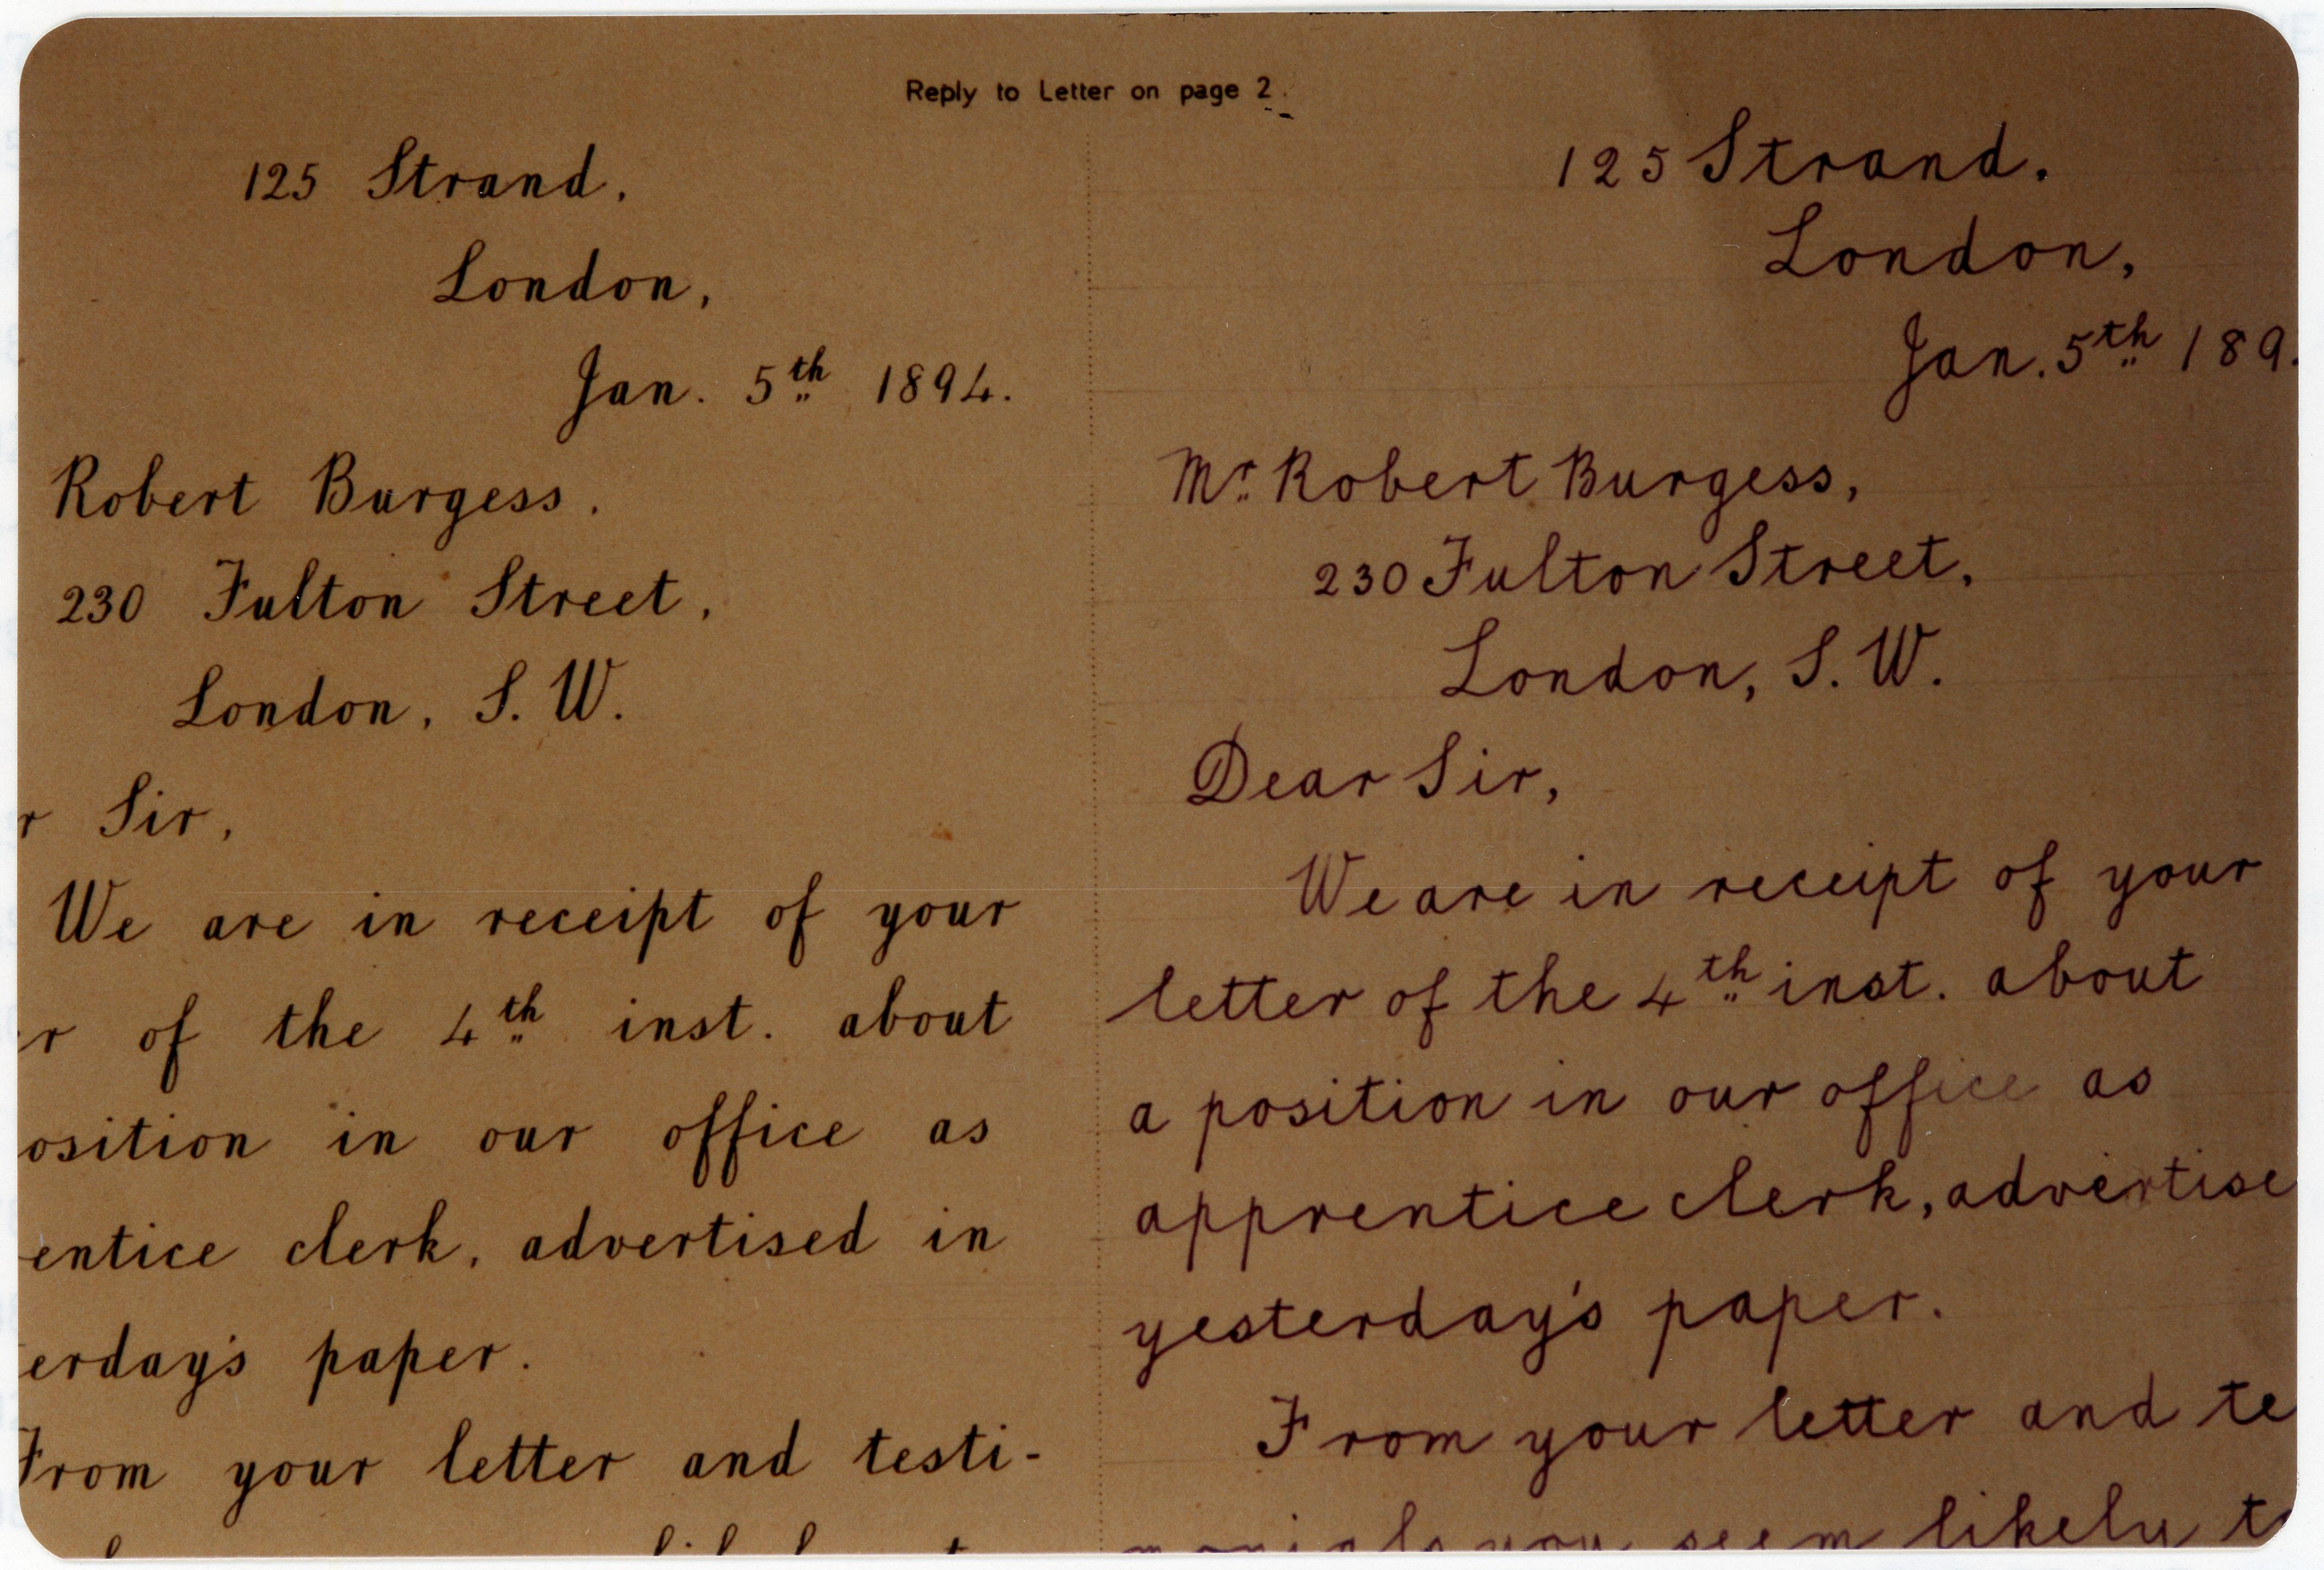 Reply to Letter on page 2.
125 Strand,
London,
Jan. 5th 1894.
Robert Burgess.
230 Fulton Street,
London, S. W.
r Sir,
We are in receipt of your
r of the 4th inst. about
osition in our office as
entice clerk, advertised in
erday's paper.
From your letter and testi-
125 Strand.
London,
Jan. 5th 189
Mr. Robert Burgess,
230 Fulton Street,
London, S. W.
Dear Sir,
We are in receipt of your
letter of the 4th inst. about
a position in our office as
apprentice clerk, advertise
yesterday's paper.
From your letter and te
monials you seem likely t